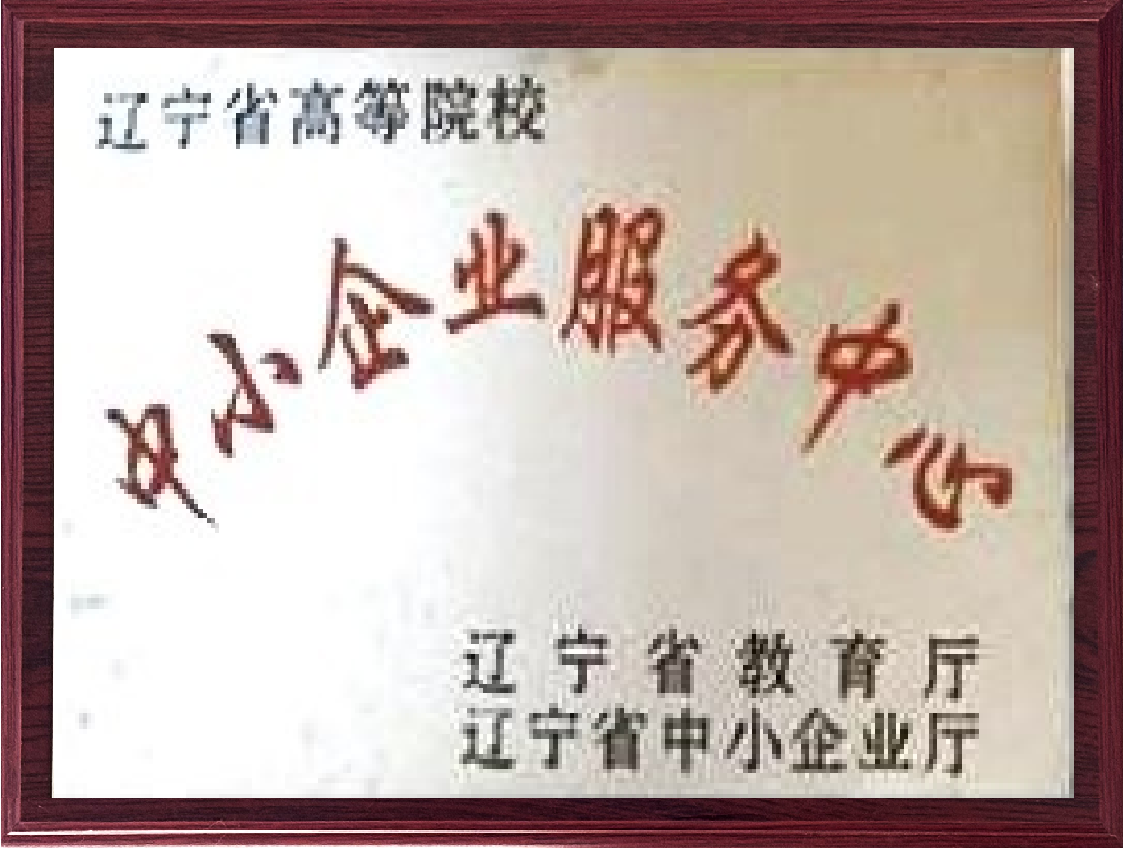 辽宁省高等院校
中小企业服务中心
辽宁省教育厅
辽宁省中小企业厅